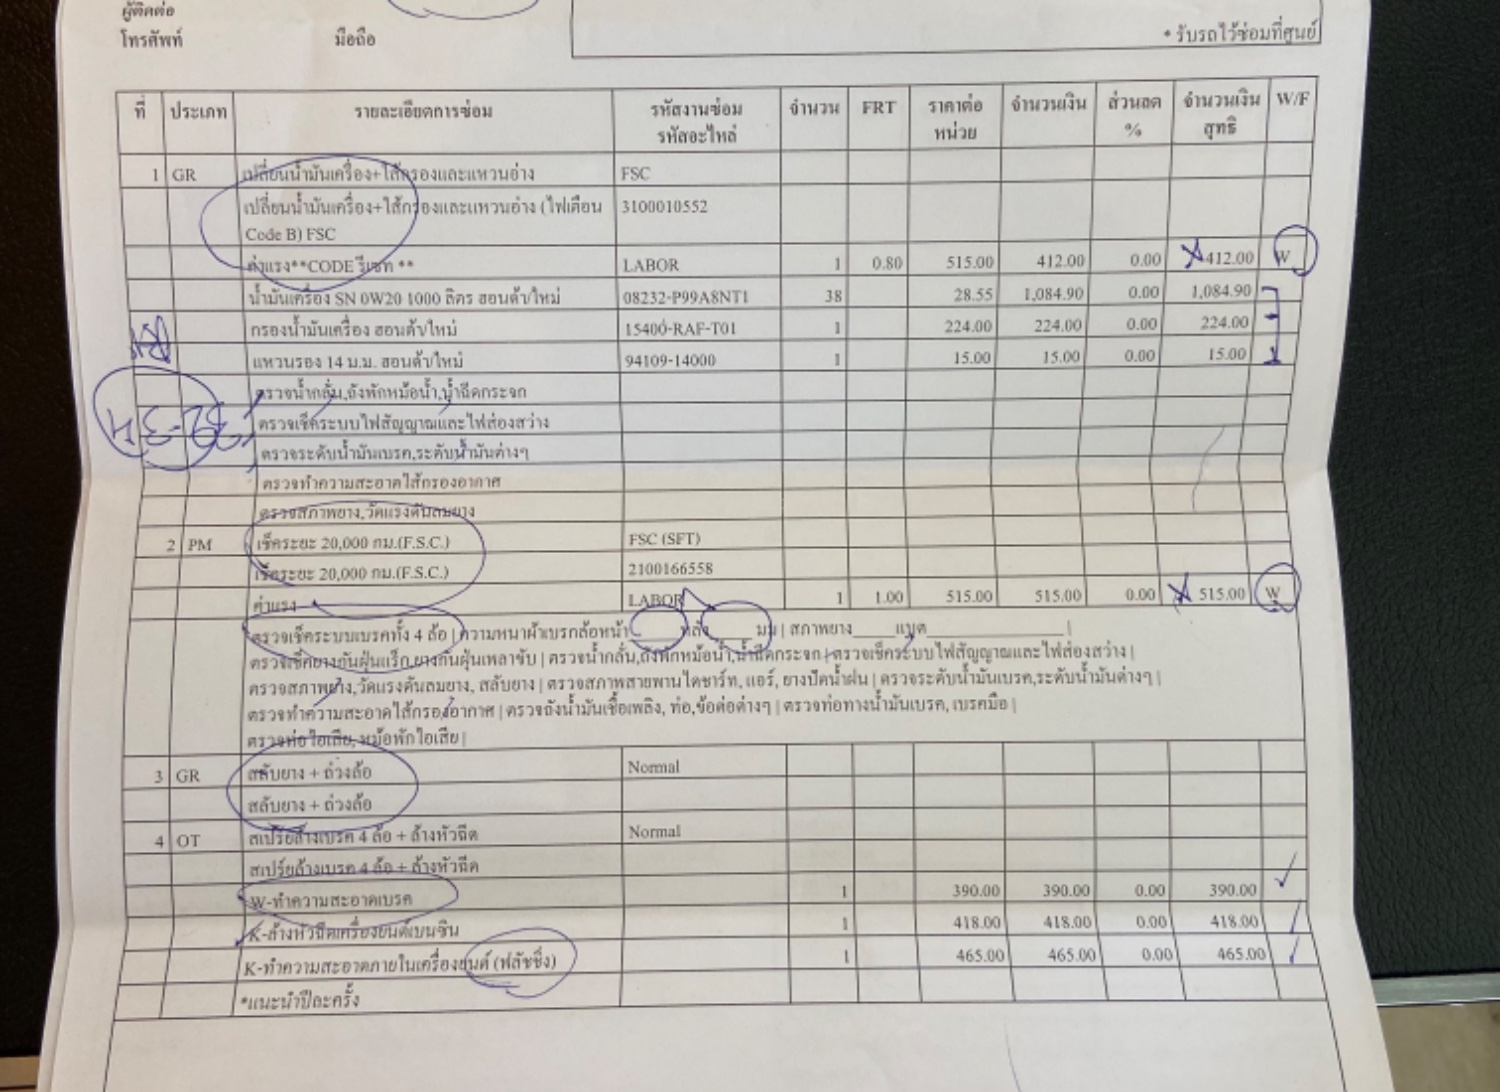 ผู้ติดต่อ
โทรศัพท์ มือถือ * รับรถไว้ซ่อมที่ศูนย์
ที่ ประเภท รายละเอียดการซ่อม รหัสงานซ่อม รหัสอะไหล่ จำนวน FRT ราคาต่อหน่วย จำนวนเงิน ส่วนลด % จำนวนเงินสุทธิ W/F
1 GR เปลี่ยนน้ำมันเครื่อง+ไส้กรองและแหวนอ่าง FSC
เปลี่ยนน้ำมันเครื่อง+ไส้กรองและแหวนอ่าง (ไฟเตือน 3100010552
Code B) FSC
ค่าแรง**CODE รีเซท ** LABOR 1 0.80 515.00 412.00 0.00 412.00 W
น้ำมันเครื่อง SN 0W20 1000 ลิตร ฮอนด้า/ใหม่ 08232-P99A8NT1 38 28.55 1,084.90 0.00 1,084.90
กรองน้ำมันเครื่อง ฮอนด้า/ใหม่ 15400-RAF-T01 1 224.00 224.00 0.00 224.00
แหวนรอง 14 ม.ม. ฮอนด้า/ใหม่ 94109-14000 1 15.00 15.00 0.00 15.00
ตรวจน้ำกลั่น,ถังพักหม้อน้ำ,น้ำฉีดกระจก
ตรวจเช็คระบบไฟสัญญาณและไฟส่องสว่าง
ตรวจระดับน้ำมันเบรค,ระดับน้ำมันต่างๆ
ตรวจทำความสะอาดไส้กรองอากาศ
ตรวจสภาพยาง,วัดแรงดันลมยาง
2 PM เช็คระยะ 20,000 กม.(F.S.C.) FSC (SFT)
เช็คระยะ 20,000 กม.(F.S.C.) 2100166558
ค่าแรง LABOR 1 1.00 515.00 515.00 0.00 515.00 W
ตรวจเช็คระบบเบรคทั้ง 4 ล้อ | ความหนาผ้าเบรกล้อหน้า____หลัง____มม | สภาพยาง____แบต____________|
ตรวจเช็คยางกันฝุ่นแร็ก,ยางกันฝุ่นเพลาขับ | ตรวจน้ำกลั่น,ถังพักหม้อน้ำ,น้ำฉีดกระจก | ตรวจเช็คระบบไฟสัญญาณและไฟส่องสว่าง |
ตรวจสภาพยาง,วัดแรงดันลมยาง, สลับยาง | ตรวจสภาพสายพานไดชาร์ท, แอร์, ยางปัดน้ำฝน | ตรวจระดับน้ำมันเบรค,ระดับน้ำมันต่างๆ |
ตรวจทำความสะอาดไส้กรองอากาศ | ตรวจถังน้ำมันเชื้อเพลิง, ท่อ,ข้อต่อต่างๆ | ตรวจท่อทางน้ำมันเบรค, เบรคมือ |
ตรวจท่อไอเสีย, หม้อพักไอเสีย |
3 GR สลับยาง + ถ่วงล้อ Normal
สลับยาง + ถ่วงล้อ
4 OT สเปร์ยล้างเบรค 4 ล้อ + ล้างหัวฉีด Normal
สเปร์ยล้างเบรค 4 ล้อ + ล้างหัวฉีด
W-ทำความสะอาดเบรค 1 390.00 390.00 0.00 390.00
K-ล้างหัวฉีดเครื่องยนต์เบนซิน 1 418.00 418.00 0.00 418.00
K-ทำความสะอาดภายในเครื่องยนต์ (ฟลัชชิ่ง) 1 465.00 465.00 0.00 465.00
*แนะนำปีละครั้ง